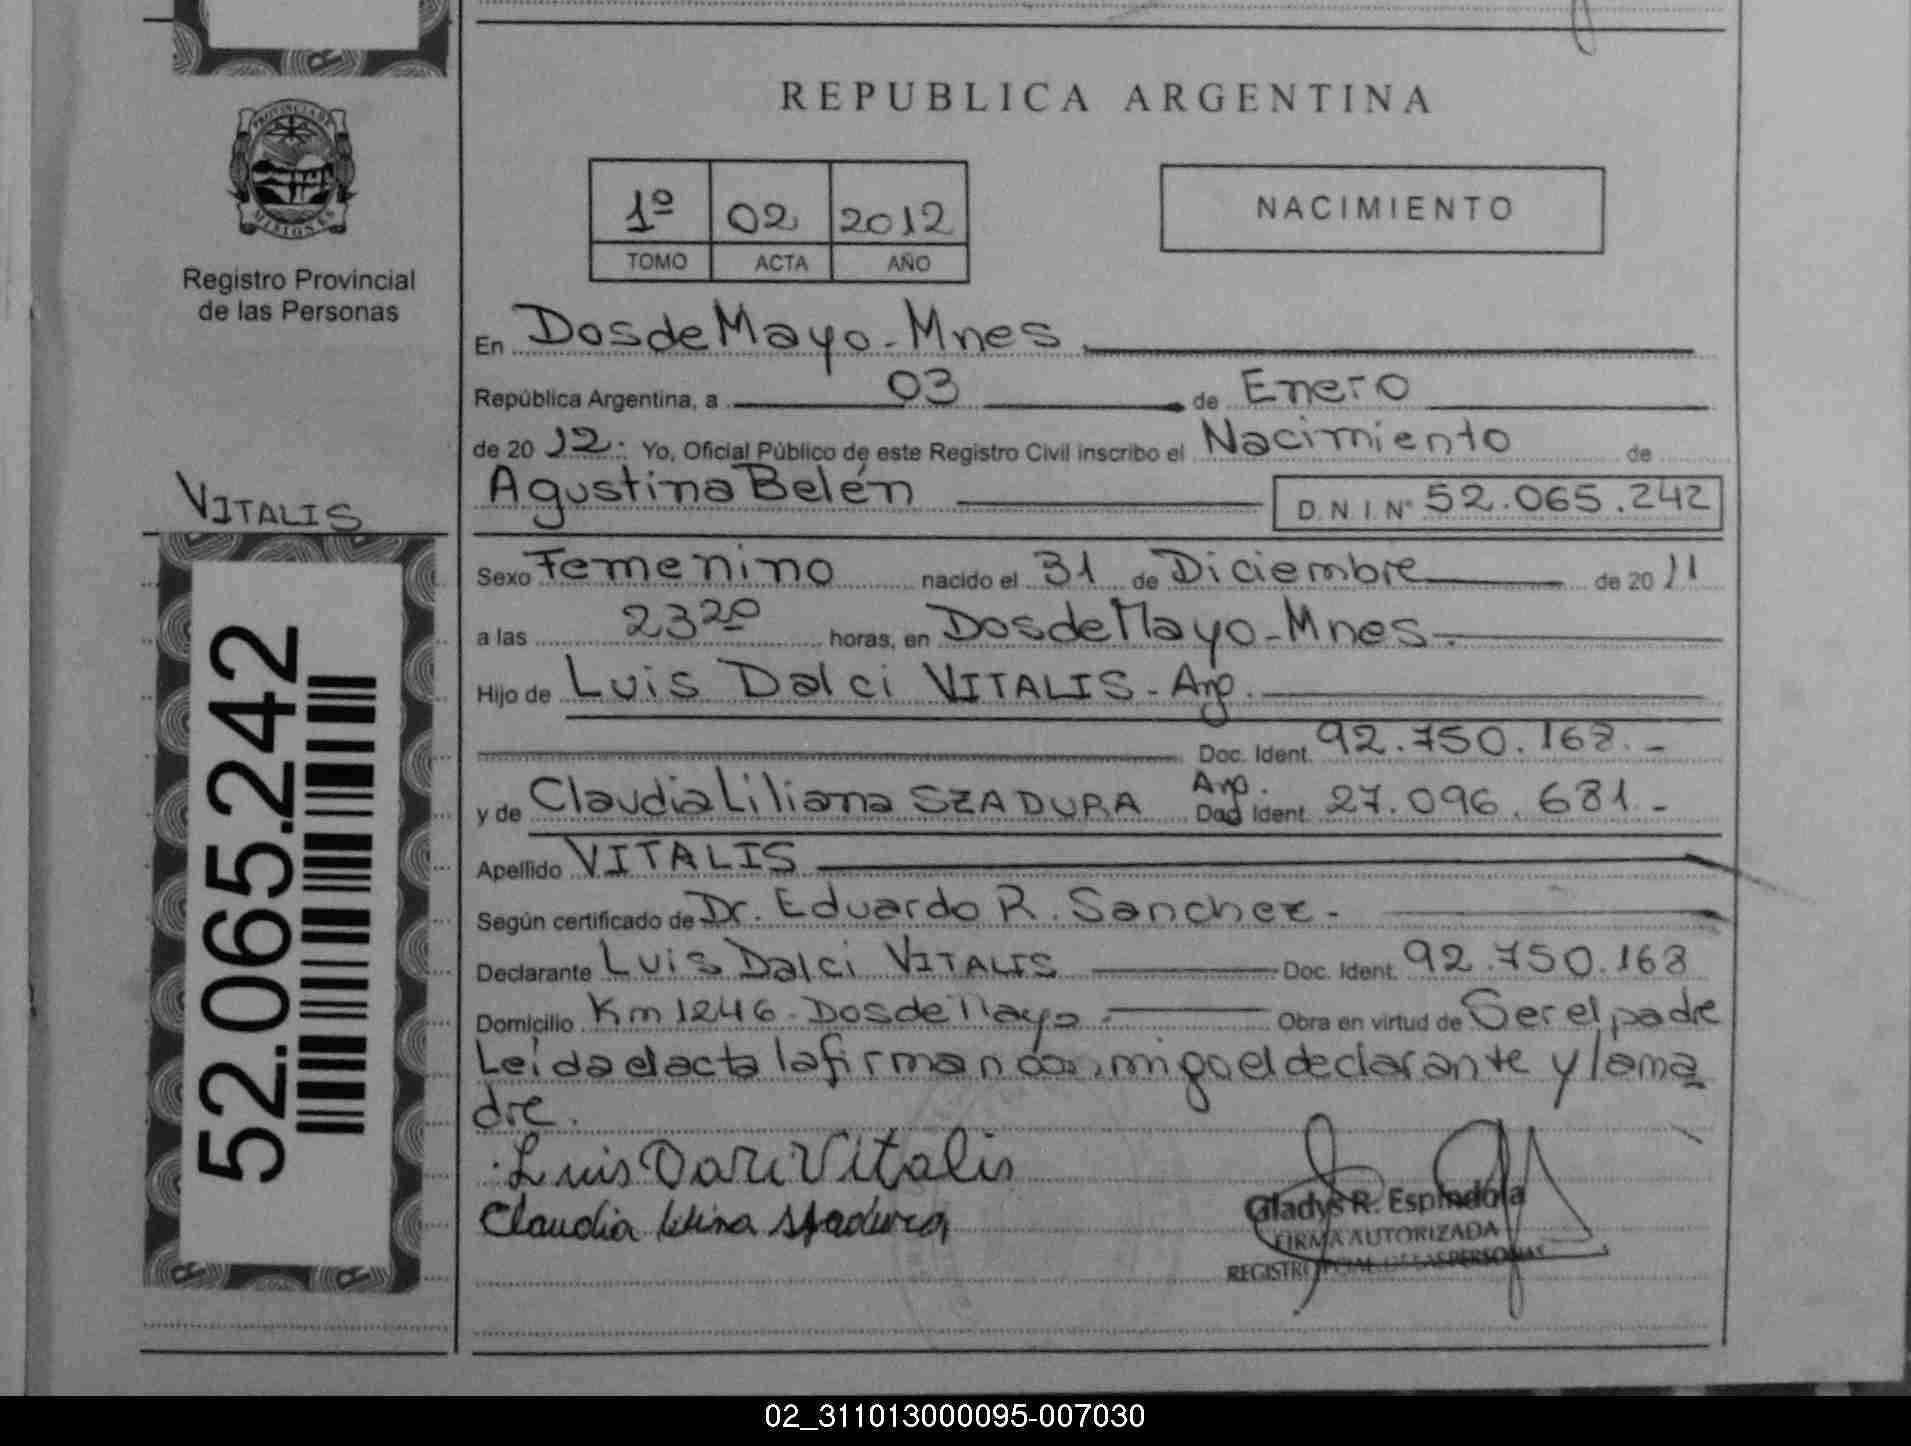 REPUBLICA ARGENTINA
PROVINCIA DE
MISIONES
Registro Provincial
de las Personas
1º 02 2012
TOMO ACTA AÑO
NACIMIENTO
En Dos de Mayo - Mnes
República Argentina, a 03 de Enero
de 20 12. Yo, Oficial Público de este Registro Civil inscribo el Nacimiento de
VITALIS
Agustina Belén D.N.I. Nº 52.065.242
Sexo Femenino nacido el 31 de Diciembre de 20 11
a las 23 20 horas, en Dos de Mayo - Mnes.
Hijo de Luis Dalci VITALIS - Arg.
Doc. Ident. 92.750.168.-
y de Claudia Liliana SZADURA Arg. Doc. Ident. 27.096.681.-
Apellido VITALIS
Según certificado de Dr. Eduardo R. Sanchez.-
Declarante Luis Dalci VITALIS Doc. Ident. 92.750.168
Domicilio Km 1246 - Dos de Mayo. Obra en virtud de Ser el padre
Leída el acta la firman conmigo el declarante y la ma
dre.
Luis Vitalis
Claudia
Gladys R. Espindola
FIRMA AUTORIZADA
52.065.242
02_311013000095-007030